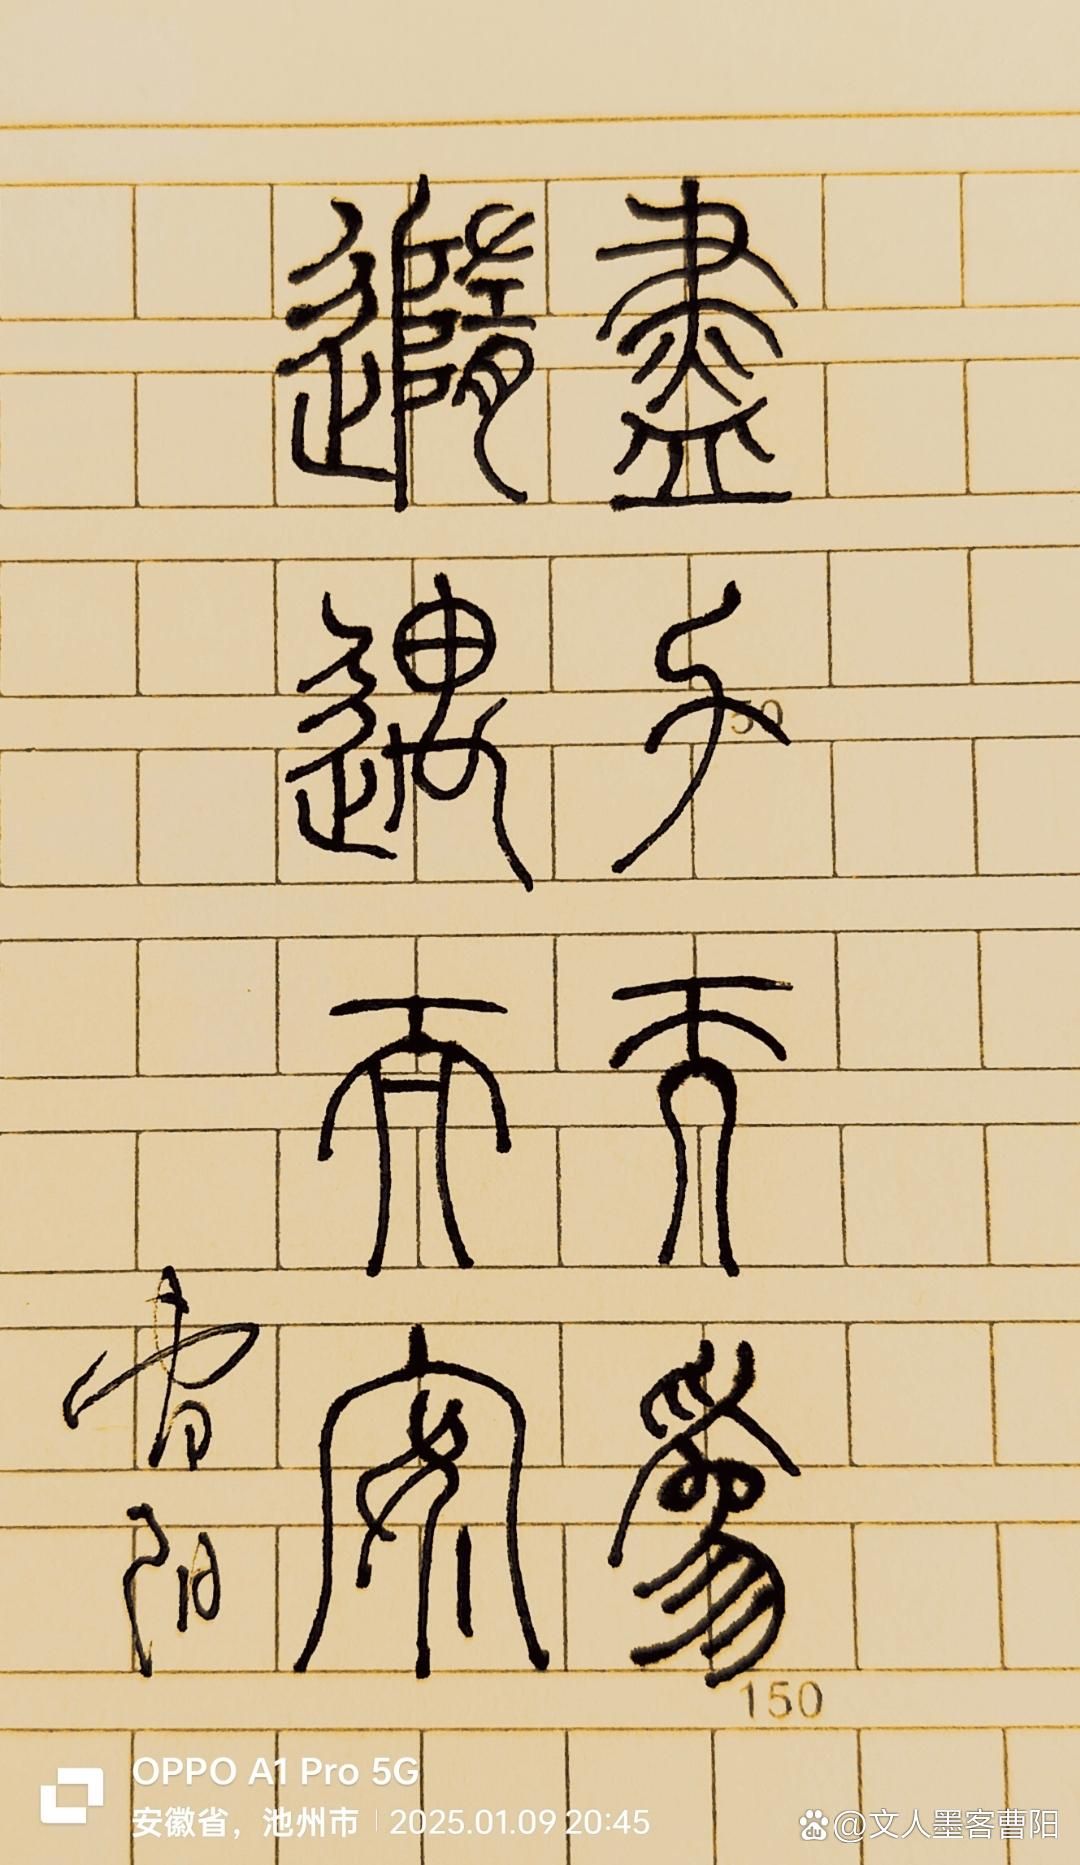 盡力而爲
隨遇而安
曹阳
50
150
OPPO A1 Pro 5G
安徽省，池州市 | 2025.01.09 20:45
@文人墨客曹阳